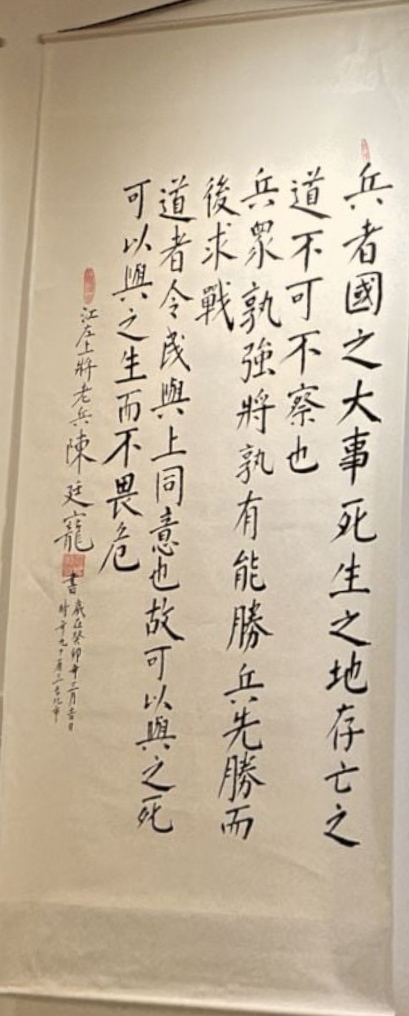 兵者國之大事死生之地存亡之
道不可不察也
兵眾孰強將孰有能勝兵先勝而
後求戰
道者令民與上同意也故可以與之死
可以與之生而不畏危
江左上將老兵陳廷寵書
歲在癸卯年三月吉日
時年九十